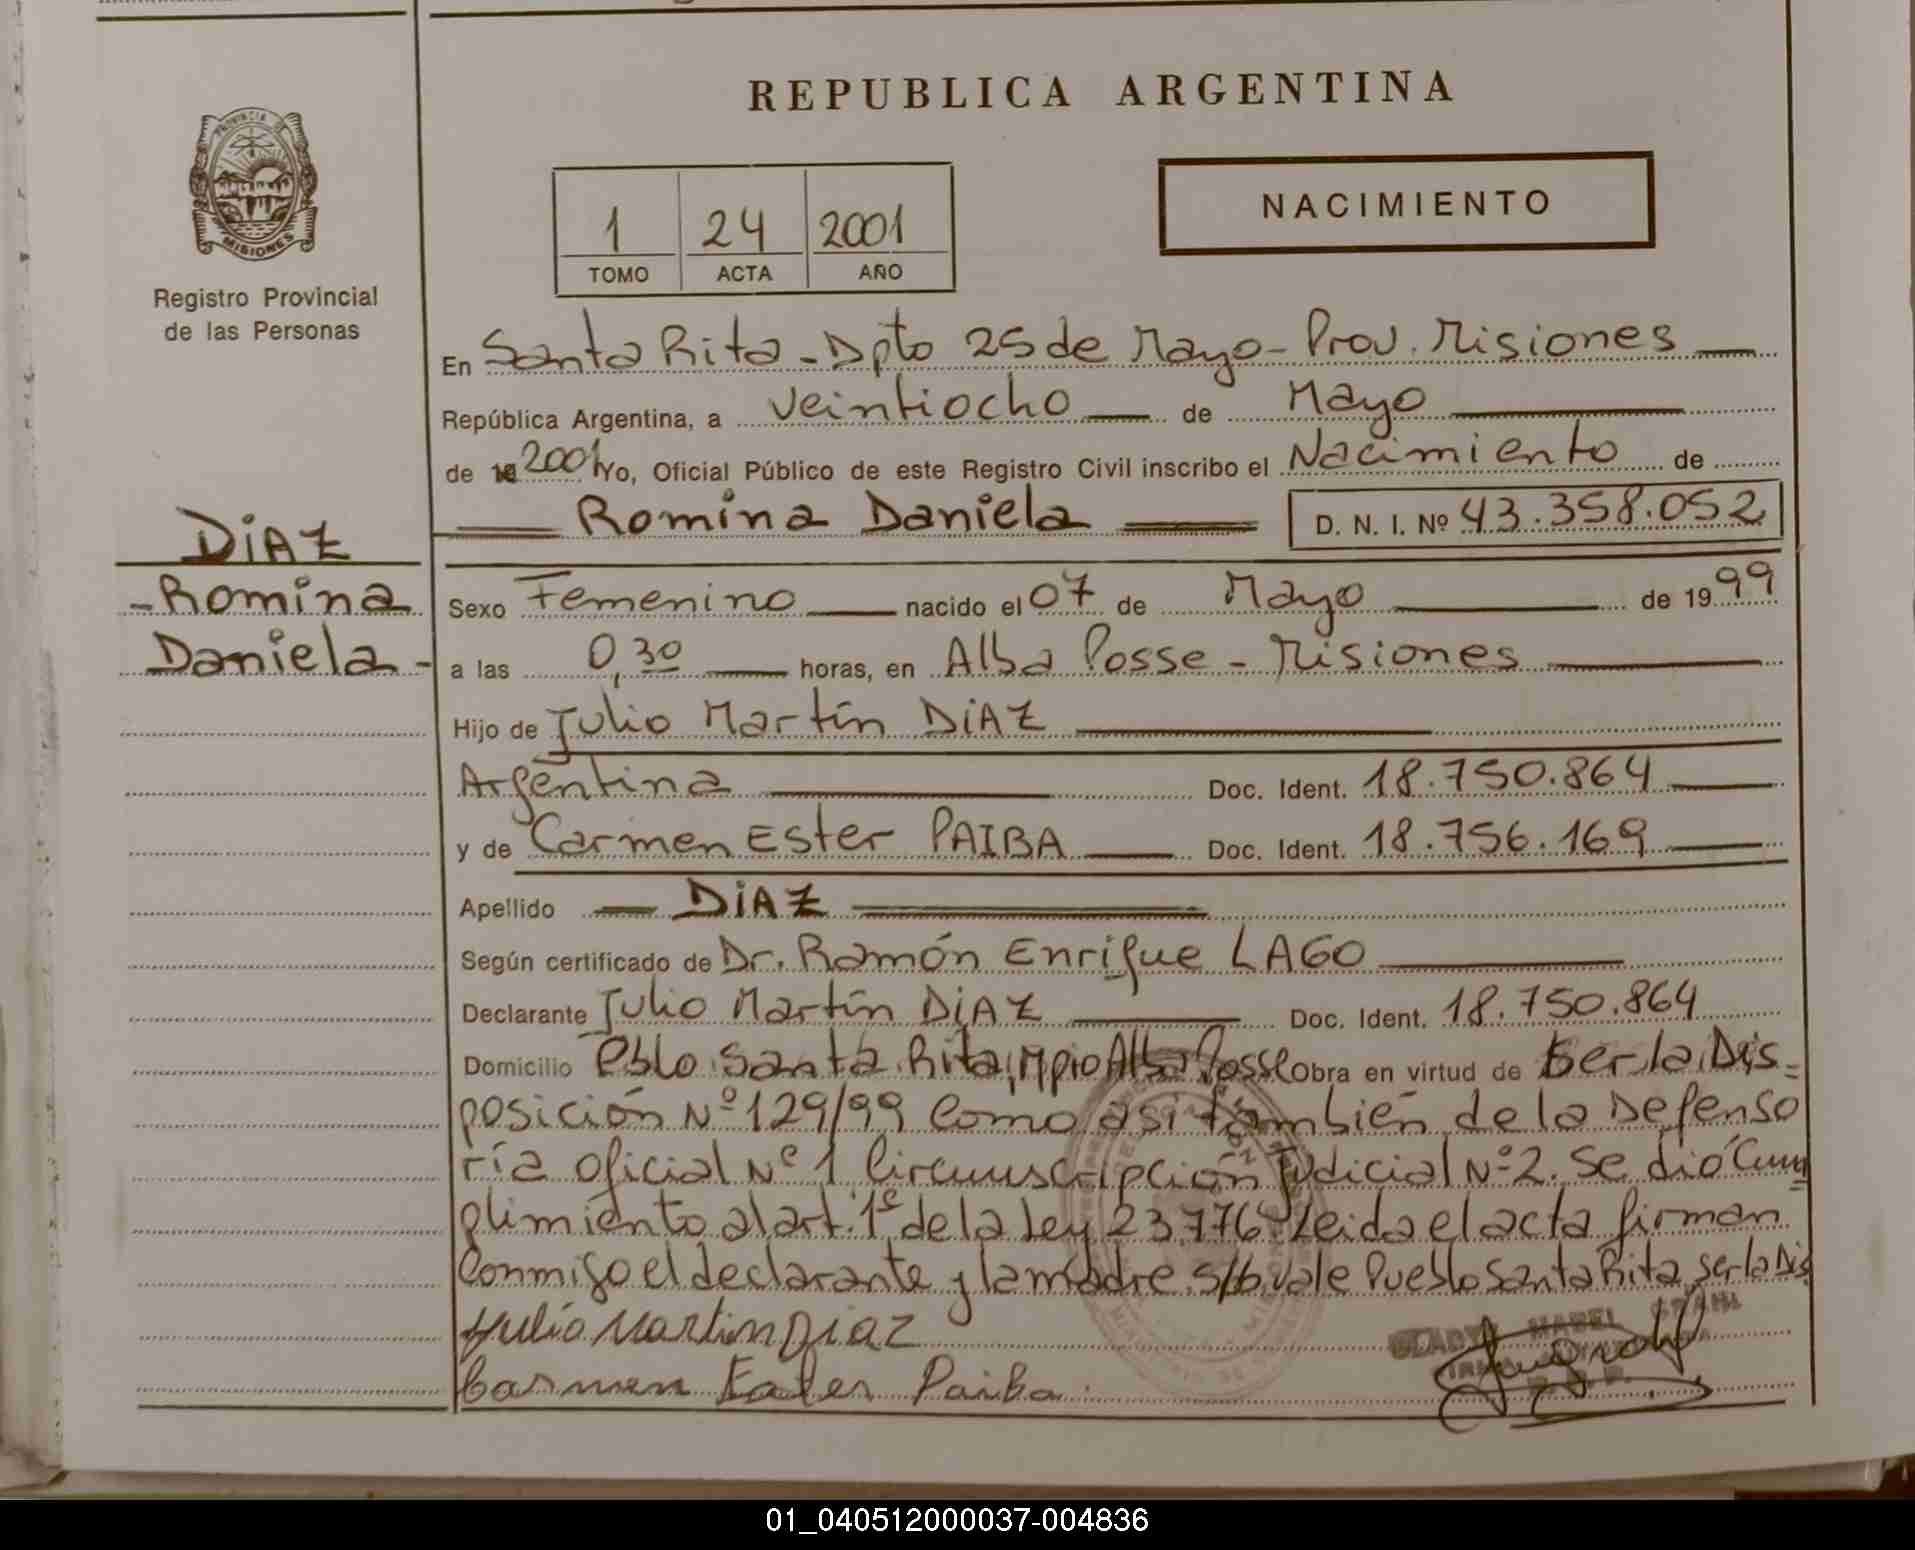 REPUBLICA ARGENTINA
PROVINCIA DE
MISIONES
Registro Provincial
de las Personas
1 24 2001
TOMO ACTA AÑO
NACIMIENTO
En Santa Rita - Dpto 25 de Mayo - Prov. Misiones
República Argentina, a veintiocho de Mayo
de 2001 Yo, Oficial Público de este Registro Civil inscribo el Nacimiento de
Romina Daniela D. N. I. Nº 43.358.052
DIAZ
- Romina
Daniela -
Sexo Femenino nacido el 07 de Mayo de 1999
a las 0,30 horas, en Alba Posse - Misiones
Hijo de Julio Martín DIAZ
Argentina Doc. Ident. 18.750.864
y de Carmen Ester PAIBA Doc. Ident. 18.756.169
Apellido DIAZ
Según certificado de Dr. Ramón Enrique LAGO
Declarante Julio Martín DIAZ Doc. Ident. 18.750.864
Domicilio Pblo Santa Rita, Mpio Alba Posse Obra en virtud de ser la Dis=
posición Nº 129/99 como así también de la Defenso
ría oficial Nº 1 Circunscripción Judicial Nº 2. Se dió Cum=
plimiento al art. 1º de la Ley 23.776. Leida el acta firman
Conmigo el declarante y la madre. s/b. vale Pueblo Santa Rita, ser la Dis
Julio Martin Diaz
Carmen Ester Paiba
MABEL
01_040512000037-004836